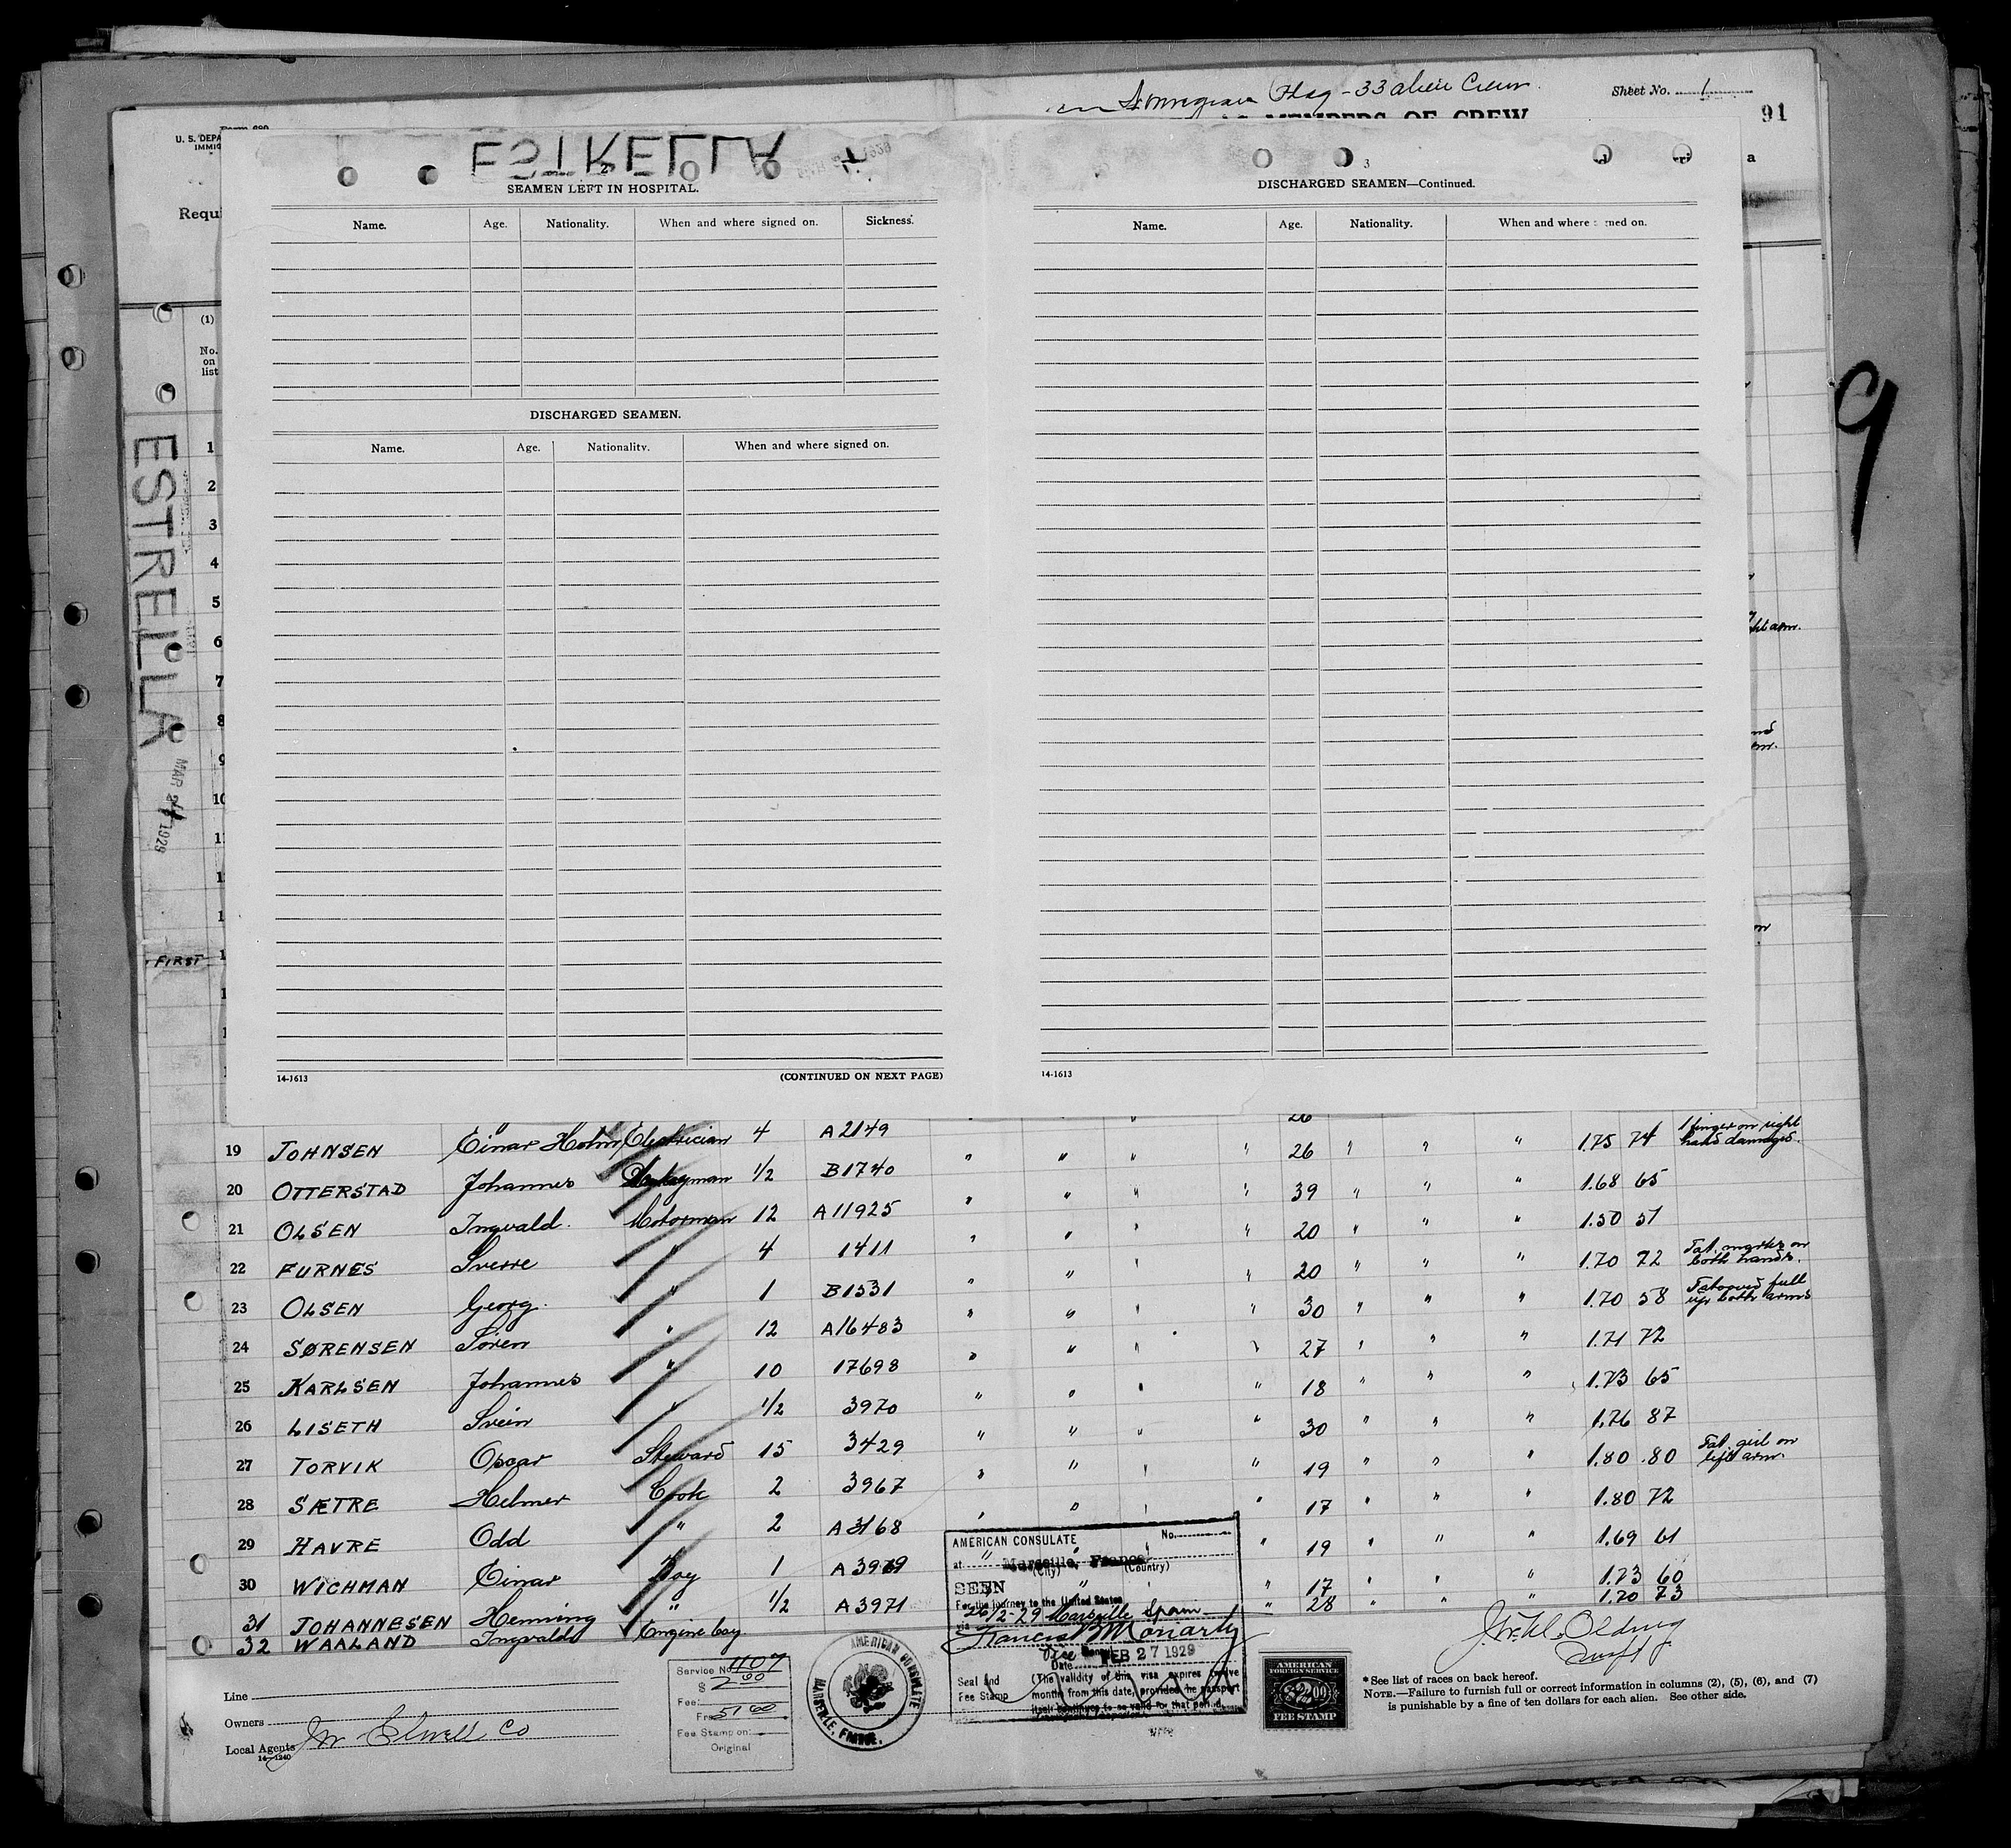 Norwegian Flag - 33 alien Crew.
Sheet No. 1
MEMBERS OF CREW
91
U. S. DEPA
IMMIG
Requi
ESTRELLA
SEAMEN LEFT IN HOSPITAL.
Name. Age. Nationality. When and where signed on. Sickness.
DISCHARGED SEAMEN.
Name. Age. Nationality. When and where signed on.
14-1613
(CONTINUED ON NEXT PAGE)
3
DISCHARGED SEAMEN—Continued.
Name. Age. Nationality. When and where ned on.
14-1613
9
(1)
No.
on
list
1
2
3
4
5
6
7
8
9
10
ESTRELLA
MAR 1929
FIRST
arm.
26
19 JOHNSEN Einar Holm Electrician 4 A2149 " " " " 26 " " " 1.75 74 1 finger on right hand damaged.
20 OTTERSTAD Johannes 1/2 B1740 " " " " 39 " " " 1.68 65
21 OLSEN Ingvald. Motorman 12 A11925 " " " " 20 " " " 1.50 51
22 FURNES Sverre " 4 1411 " " " " 20 " " " 1.70 72 Tat. marks on both hands.
23 OLSEN Georg. " 1 B1531 " " " " 30 " " " 1.70 58 Tatooved full up both arms
24 SØRENSEN Sören " 12 A16483 " " " " 27 " " " 1.71 72
25 KARLSEN Johannes " 10 17698 " " " " 18 " " " 1.73 65
26 LISETH Svein " 1/2 3970 " " " " 30 " " " 1.76 87
27 TORVIK Oscar Steward 15 3429 " " " " 19 " " " 1.80 80 Tat. girl on left arm.
28 SÆTRE Helmer Cook 2 3967 " " " " 17 " " " 1.80 72
29 HAVRE Odd " 2 A3168 " " " " 19 " " " 1.69 61
30 WICHMAN Einar Boy 1 A3969 " " " " 17 " " " 1.73 60
31 JOHANNESEN Henning " 1/2 A3971 " 28 " " " 1.70 73
32 WAALAND Ingvald Engine boy.
AMERICAN CONSULATE No.
at Marseille, France
(City) (Country)
SEEN
For the journey to the United States
via 26/2-29 Marseille Spain
Francis B Moriarty
Vice Consul
Date FEB 27 1929
Seal and Fee Stamp
(The validity of this visa expires twelve
months from this date, provided the passport
itself continues to be valid for that period.
Service No. 1107
$ 2.00
Fee:
Frs 51.60
Fee Stamp on
Original
AMERICAN CONSULATE
MARSEILLE, FRANCE.
AMERICAN
FOREIGN SERVICE
$2.00
FEE STAMP
Line
Owners
Local Agents J W Elwell Co
14—1240
* See list of races on back hereof.
NOTE.—Failure to furnish full or correct information in columns (2), (5), (6), and (7)
is punishable by a fine of ten dollars for each alien. See other side.